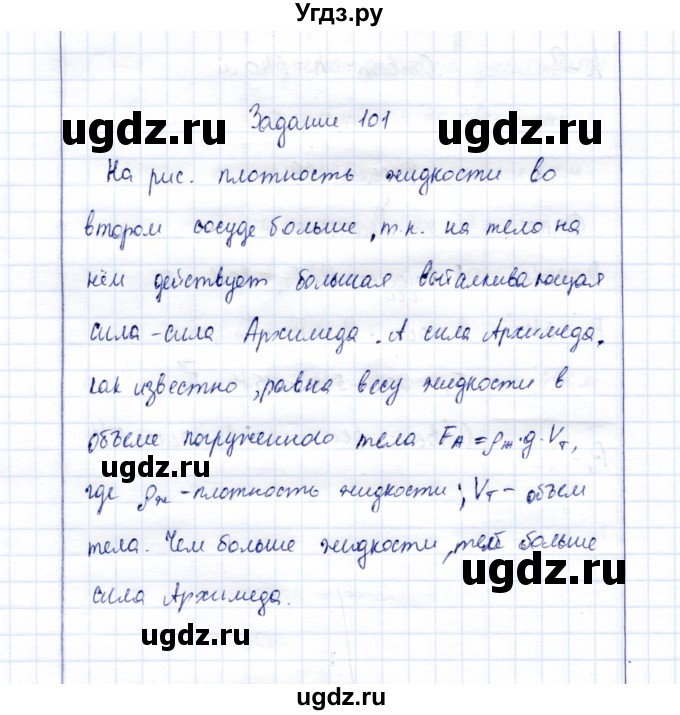 Угдз.ру
Задание 101
ugdz.ru ugdz.ru
На рис. плотность жидкости во
втором сосуде больше, т.к. на тело на
нём действует большая выталкивающая
сила - сила Архимеда. А сила Архимеда,
как известно, равна весу жидкости в
объеме погруженного тела Fₐ = ρж · g · Vт,
ugdz.ru
где ρж - плотность жидкости; Vт - объем
тела. Чем больше жидкости, тем больше
ugdz.ru
сила Архимеда.
ugdz.ru
ugdz.ru